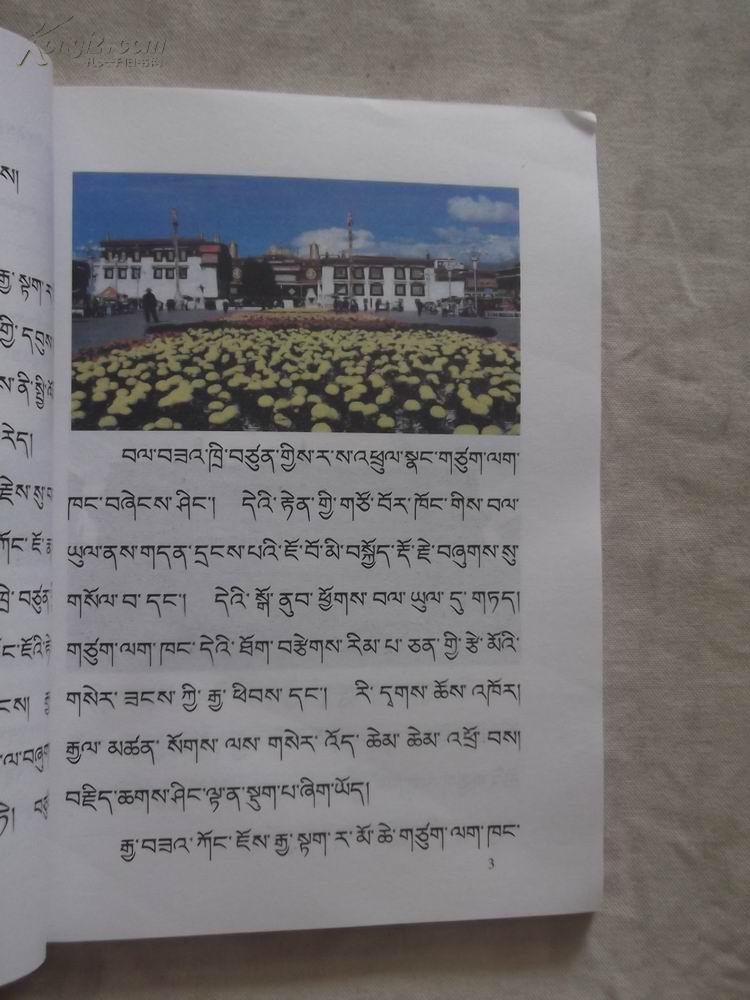 Kongfz.com
ས།
རྒྱ་སྟག་ར
གྱི་དབུས
རེད།
བལ་བཟའ་ཁྲི་བཙུན་གྱིས་ར་ས་འཕྲུལ་སྣང་གཙུག་ལག་
ཁང་བཞེངས་ཤིང་། དེའི་རྟེན་གྱི་གཙོ་བོར་ཁོང་གིས་བལ་
ཡུལ་ནས་གདན་དྲངས་པའི་ཇོ་བོ་མི་བསྐྱོད་རྡོ་རྗེ་བཞུགས་སུ་
གསོལ་བ་དང་། དེའི་སྒོ་ནུབ་ཕྱོགས་བལ་ཡུལ་དུ་གཏད།
གཙུག་ལག་ཁང་དེའི་ཐོག་བརྩེགས་རིམ་པ་ཅན་གྱི་རྩེ་མོའི་
གསེར་ཟངས་ཀྱི་རྒྱ་ཕིབས་དང་། རི་དྭགས་ཆོས་འཁོར།
རྒྱལ་མཚན་སོགས་ལས་གསེར་འོད་ཆེམ་ཆེམ་འཕྲོ་བས།
བརྗིད་ཆགས་ཤིང་ལྟ་ན་སྡུག་པ་ཞིག་ཡོད།
རྒྱ་བཟའ་ཀོང་ཇོས་རྒྱ་སྟག་ར་མོ་ཆེ་གཙུག་ལག་ཁང་
3